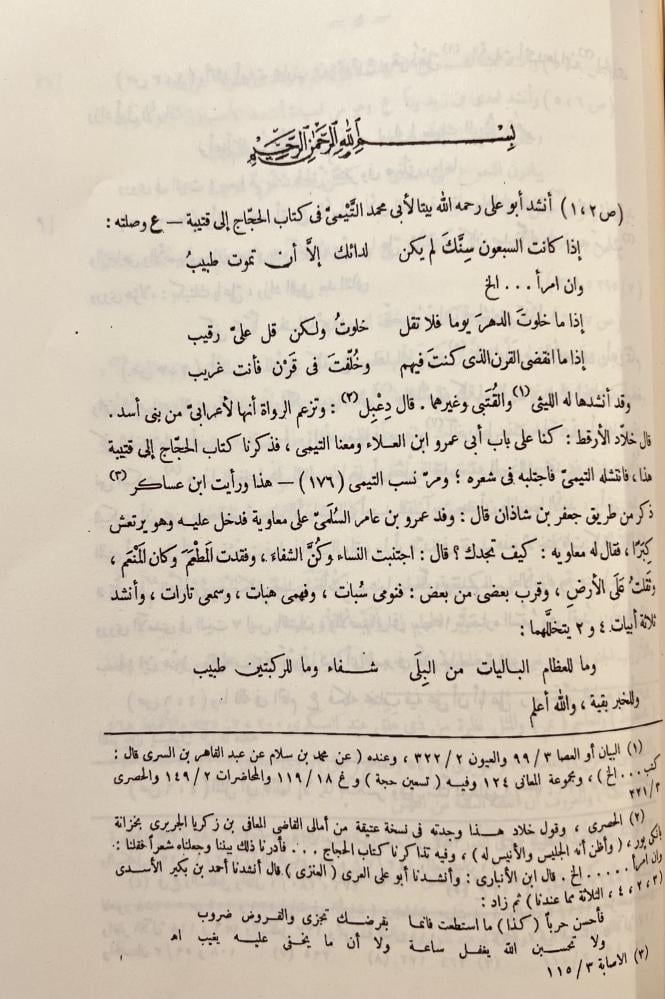 بِسْمِ اللهِ الرَّحْمٰنِ الرَّحِيْمِ
(ص ٢، ١) أنشد أبو على رحمه الله بيتا لأبى محمد التَّيْمىّ فى كتاب الحجّاج إلى قتيبة — ع وصلته :
إذا كانت السبعون سِنَّكَ لم يكن لدائك إلاَّ أن تموت طبيبُ
وان امرأ ... الخ
إذا ما خلوتَ الدهرَ يوما فلا تقل خلوتُ ولكن قل علىّ رقيب
إذا ما انقضى القرن الذى كنتَ فيهم وخُلّفتَ فى قَرْن فأنت غريب
وقد أنشدها له الليثى (١) والقُتَبى وغيرهما . قال دِعْبِل (٢) : وتزعم الرواة أنها لأعرابىّ من بنى أسد .
قال خلّاد الأرقط : كنا على باب أبى عمرو ابن العلاء ومعنا التيمى ، فذكرنا كتاب الحجّاج إلى قتيبة
هذا ، فانتشله التيمىّ فاجتلبه فى شعره ؛ ومرّ نسب التيمى (١٧٦) — هذا ورأيت ابن عساكر (٣)
ذكر من طريق جعفر بن شاذان قال : وفد عمرو بن عامر السُلَمىّ على معاوية فدخل عليه وهو يرتعش
كِبَرًا ، فقال له معاويه : كيف تجدك ؟ قال : اجتنبت النساء وكُنَّ الشفاءَ ، وفقدت المَطْعَمَ وكان المَنْعَم ،
وثقلتُ عَلَى الأرضِ ، وقرب بعضى من بعض : فنومى سُبات ، وفهمى هبات ، وسمعى تارات ، وأنشد
ثلاثة أبيات ٤ و ٢ يتخلّلهما :
وما للعظام الباليات من البِلَى شفاء وما للركبتين طبيب
وللخبر بقية ، والله أعلم
(١) البيان أو العصا ٣ / ٩٩ والعيون ٢ / ٣٢٢ ، وعنده ( عن محمد بن سلام عن عبد القاهر بن السرى قال :
كتب ... الخ ) ، ومجموعة المعانى ١٢٤ وفيه ( تسعين حجة ) و غ ١٨ / ١١٩ والمحاضرات ٢ / ١٤٩ والحصرى
٣ / ٢٢١
(٢) الحصرى ، وقول خلاد هـذا وجدته فى نسخة عتيقة من أمالى القاضى المعافى بن زكريا الجريرى بخزانة
بانكى پور ، ( وأظن أنه الجليس والأنيس له ) ، وفيه تذاكرنا كتاب الحجاج ... فأدرنا ذلك بيننا وجعلناه شعراً فقلنا :
وان امرأ ..... الخ . قال ابن الأنبارى : وأنشدنا أبو على العرى ( العنزى ) قال أنشدنا أحمد بن بكير الأسدى
( ٢ ، ٣ ، ٤ ، الثلاثة مما عندنا ) ثم زاد :
فأحسن حرباً ( كذا ) ما استطعت فانما بفرضك تجزى والقروض ضروب
ولا تحسبن الله يغفل ساعة ولا أن ما يخفى عليه يغيب اهـ
(٣) الاصابة ٣ / ١١٥